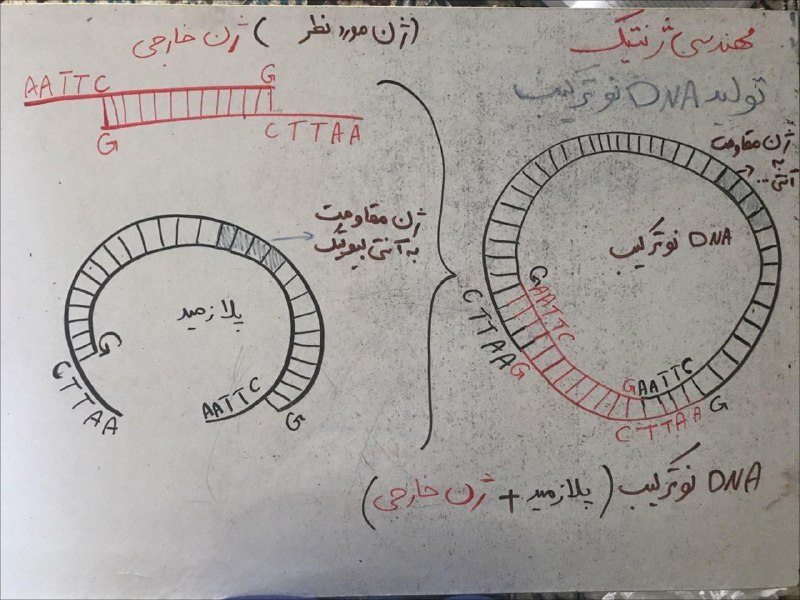 مهندسی ژنتیک
تولید DNA نوترکیب
ژن خارجی (ژن مورد نظر)
AATTC
G
G
CTTAA
ژن مقاومت
به آنتی بیوتیک
پلازمید
G
CTTAA
AATTC
G
ژن مقاومت
به
آنتی..
DNA نوترکیب
GAATTC
CTTAAG
GAATTC
CTTAAG
DNA نوترکیب (پلازمید + ژن خارجی)